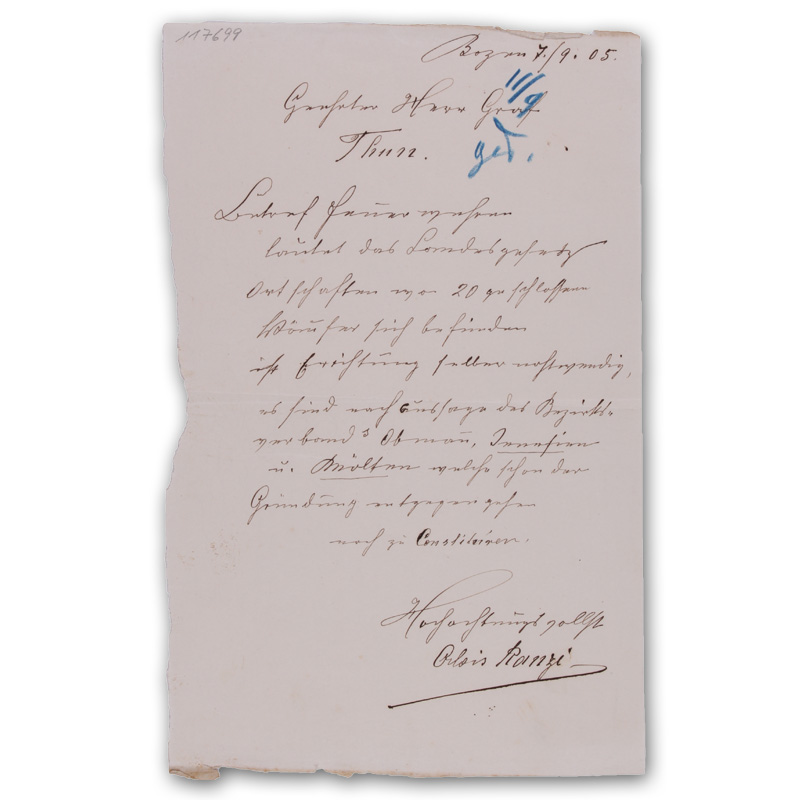 117699
Bozen 7./9. 05.
11/9
Geehrter Herr Graf
Thun.
ges.
Betref Feuerwehren
lautet das Landesgesetz
Ortschaften wo 20 geschlossene
Häuser sich befinden
ist Erichtung selber nothwendig,
es sind nach Aussage des Bezirks-
verbands Obmañ, Jenesien
u. Mölten welche schon der
Gründung entgegen gehen
noch zu Constituiren.
Hochachtungsvollst
Alois Ranzi